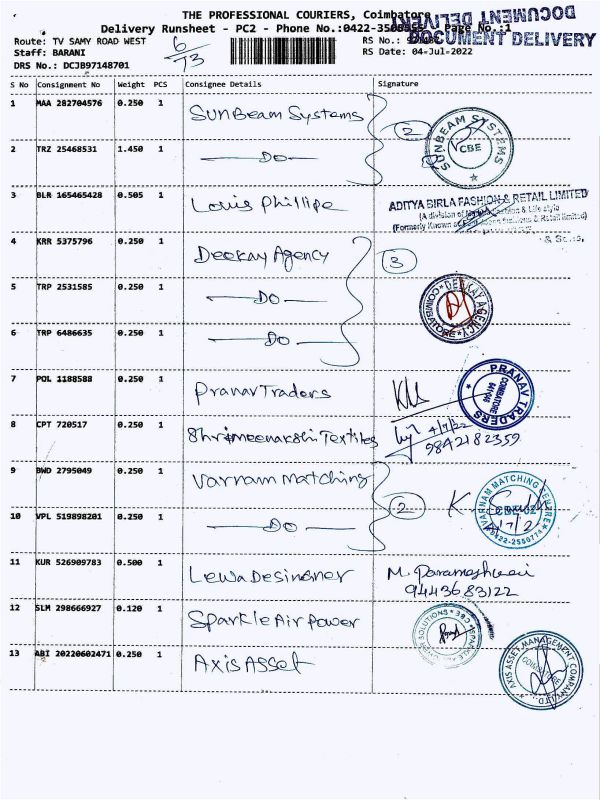 THE PROFESSIONAL COURIERS, Coimbatore
Delivery Runsheet - PC2 - Phone No.:0422- Page No.:1
DOCUMENT DELIVERY
DOCUMENT DELIVERY
Route: TV SAMY ROAD WEST
6/73
RS No.:
Staff: BARANI
RS Date: 04-Jul-2022
DRS No.: DCJB97148701
S No Consignment No Weight PCS Consignee Details Signature
1 MAA 282704576 0.250 1 SunBeam Systems 2
SUNBEAM SYSTEMS CBE
2 TRZ 25468531 1.450 1 — Do —
3 BLR 165465428 0.505 1 Louis Phillipe
ADITYA BIRLA FASHION & RETAIL LIMITED
(A division of & Life style
(Formerly Known as Fashions & Retail limited)
4 KRR 5375796 0.250 1 Deekay Agency 3
5 TRP 2531585 0.250 1 — Do —
DEEKAY AGENCY COIMBATORE
6 TRP 6486635 0.250 1 — Do —
7 POL 1188588 0.250 1 Pranav Traders
PRANAV TRADERS COIMBATORE
8 CPT 720517 0.250 1 Shrimeenakshi Textiles 4/7/22
9842182359
9 BWD 2795049 0.250 1 Varnam Matching 2
VARNAM MATCHING CENTRE CBE-02
10 VPL 519898201 0.250 1 — Do —
11 KUR 526909783 0.500 1 Lewa Desingner M. Parameshwari
9443683122
12 SLM 298666927 0.120 1 Sparkle Air Power
SOLUTIONS CBE SPARKLE
13 ABI 20220602471 0.250 1 Axis Asset
AXIS ASSET MANAGEMENT COMPANY LTD